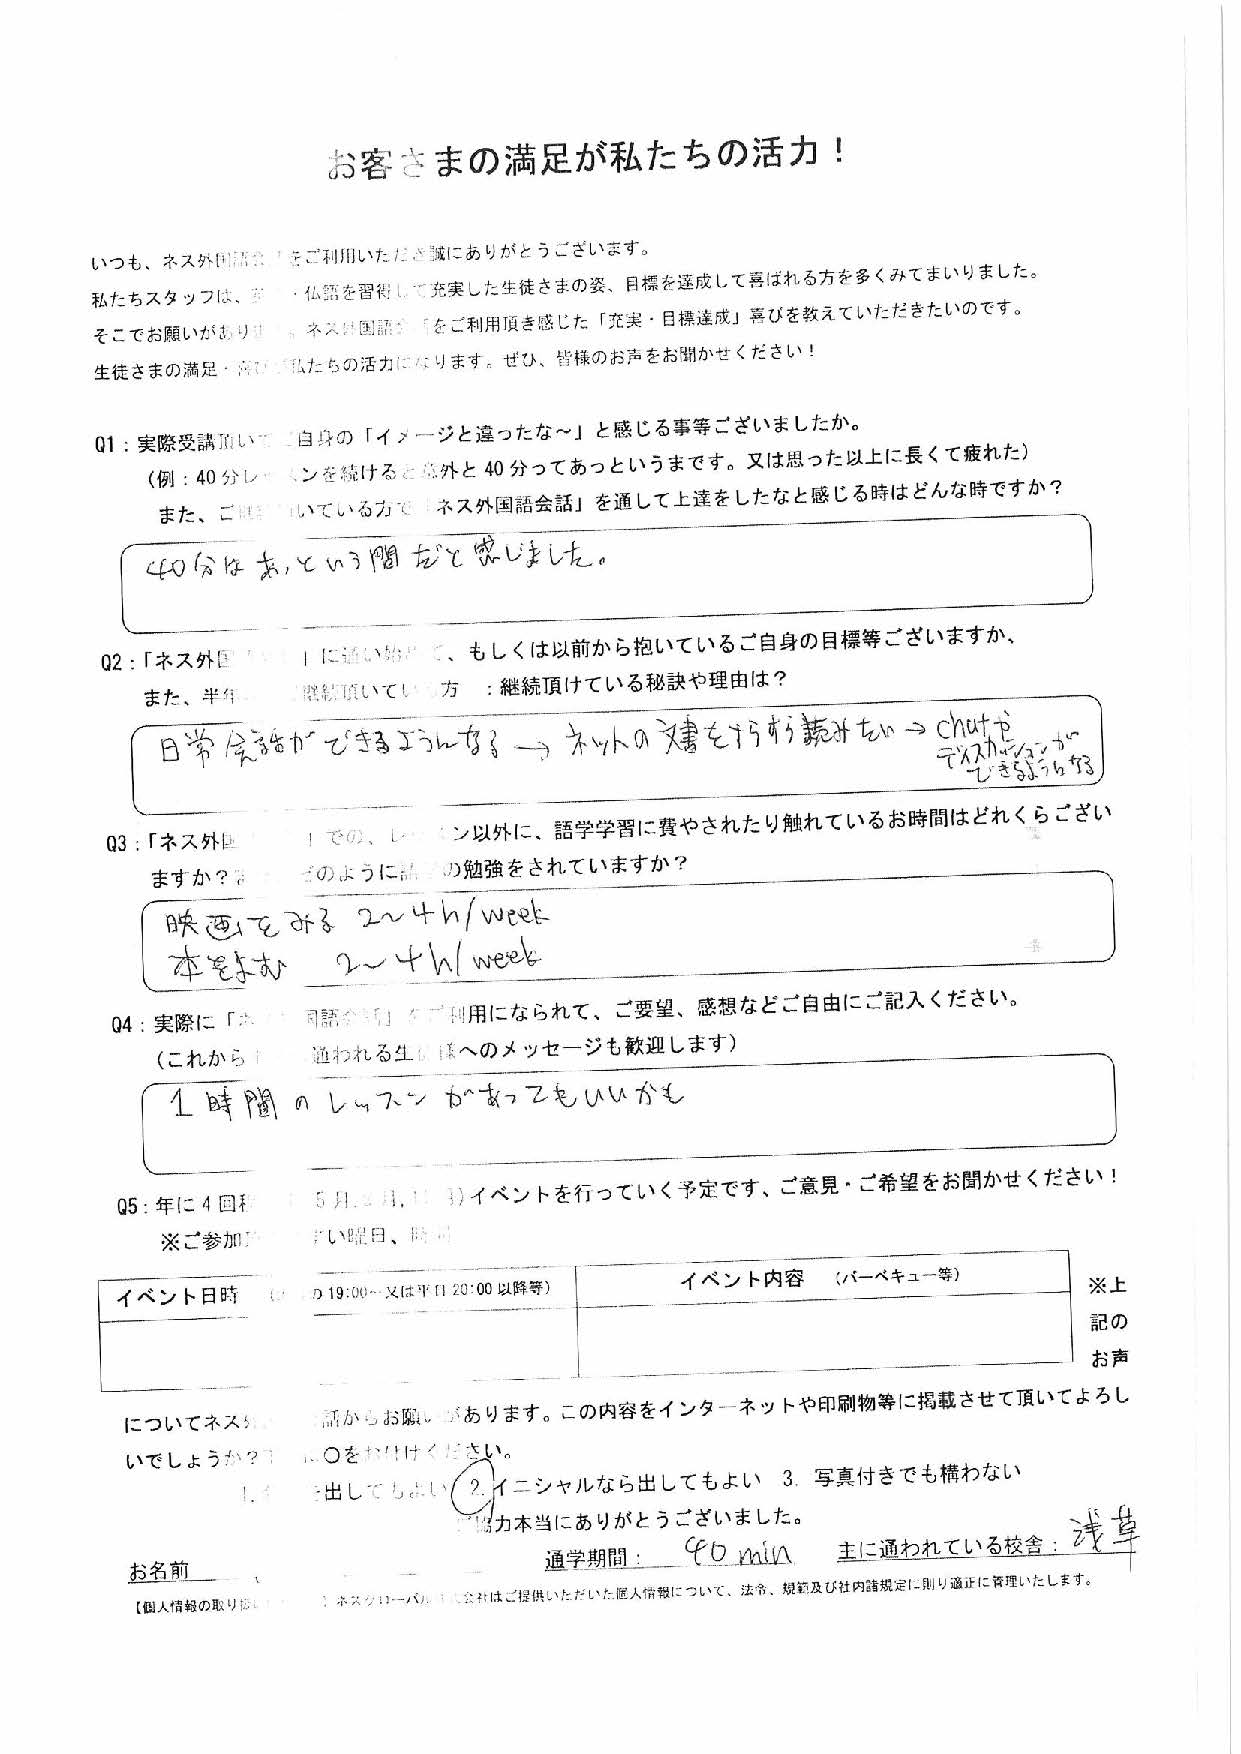 お客さまの満足が私たちの活力！
いつも、ネス外国語会 をご利用いただき誠にありがとうございます。
私たちスタッフは、英 ・仏語を習得して充実した生徒さまの姿、目標を達成して喜ばれる方を多くみてまいりました。
そこでお願いがあります。ネス外国語会 をご利用頂き感じた「充実・目標達成」喜びを教えていただきたいのです。
生徒さまの満足・喜び 私たちの活力になります。ぜひ、皆様のお声をお聞かせください！
Q1：実際受講頂いてご自身の「イメージと違ったな～」と感じる事等ございましたか。
（例：40分レッスンを続けると意外と40分ってあっというまです。又は思った以上に長くて疲れた）
また、ご いている方で「ネス外国語会話」を通して上達をしたなと感じる時はどんな時ですか？
40分はあっという間だと感じました。
Q2：「ネス外国 」に通い始めて、もしくは以前から抱いているご自身の目標等ございますか、
また、半年 継続頂いている方 ：継続頂けている秘訣や理由は？
日常会話ができるようになる → ネットの文書をすらすら読みたい → chatや
ディスカッションが
できるようになる
Q3：「ネス外国 」での、レッスン以外に、語学学習に費やされたり触れているお時間はどれくらござい
ますか？ どのように語 の勉強をされていますか？
映画をみる 2～4h/week
本をよむ 2～4h/week
Q4：実際に「ネ 国語会話」をご利用になられて、ご要望、感想などご自由にご記入ください。
（これから 通われる生徒様へのメッセージも歓迎します）
1時間のレッスンがあってもいいかも
Q5：年に4回程 5月, 月,11月)イベントを行っていく予定です、ご意見・ご希望をお聞かせください！
※ご参加 すい曜日、時間
イベント日時 の19:00～又は平日20:00以降等） イベント内容 （バーベキュー等）
※上
記の
お声
についてネス外 話からお願いがあります。この内容をインターネットや印刷物等に掲載させて頂いてよろし
いでしょうか？ ○をお付けください。
1. 出してもよい 2. イニシャルなら出してもよい 3. 写真付きでも構わない
ご協力本当にありがとうございました。
お名前 通学期間： 40 min 主に通われている校舎： 浅草
【個人情報の取り扱い 】ネスグローバル株式会社はご提供いただいた個人情報について、法令、規範及び社内諸規定に則り適正に管理いたします。